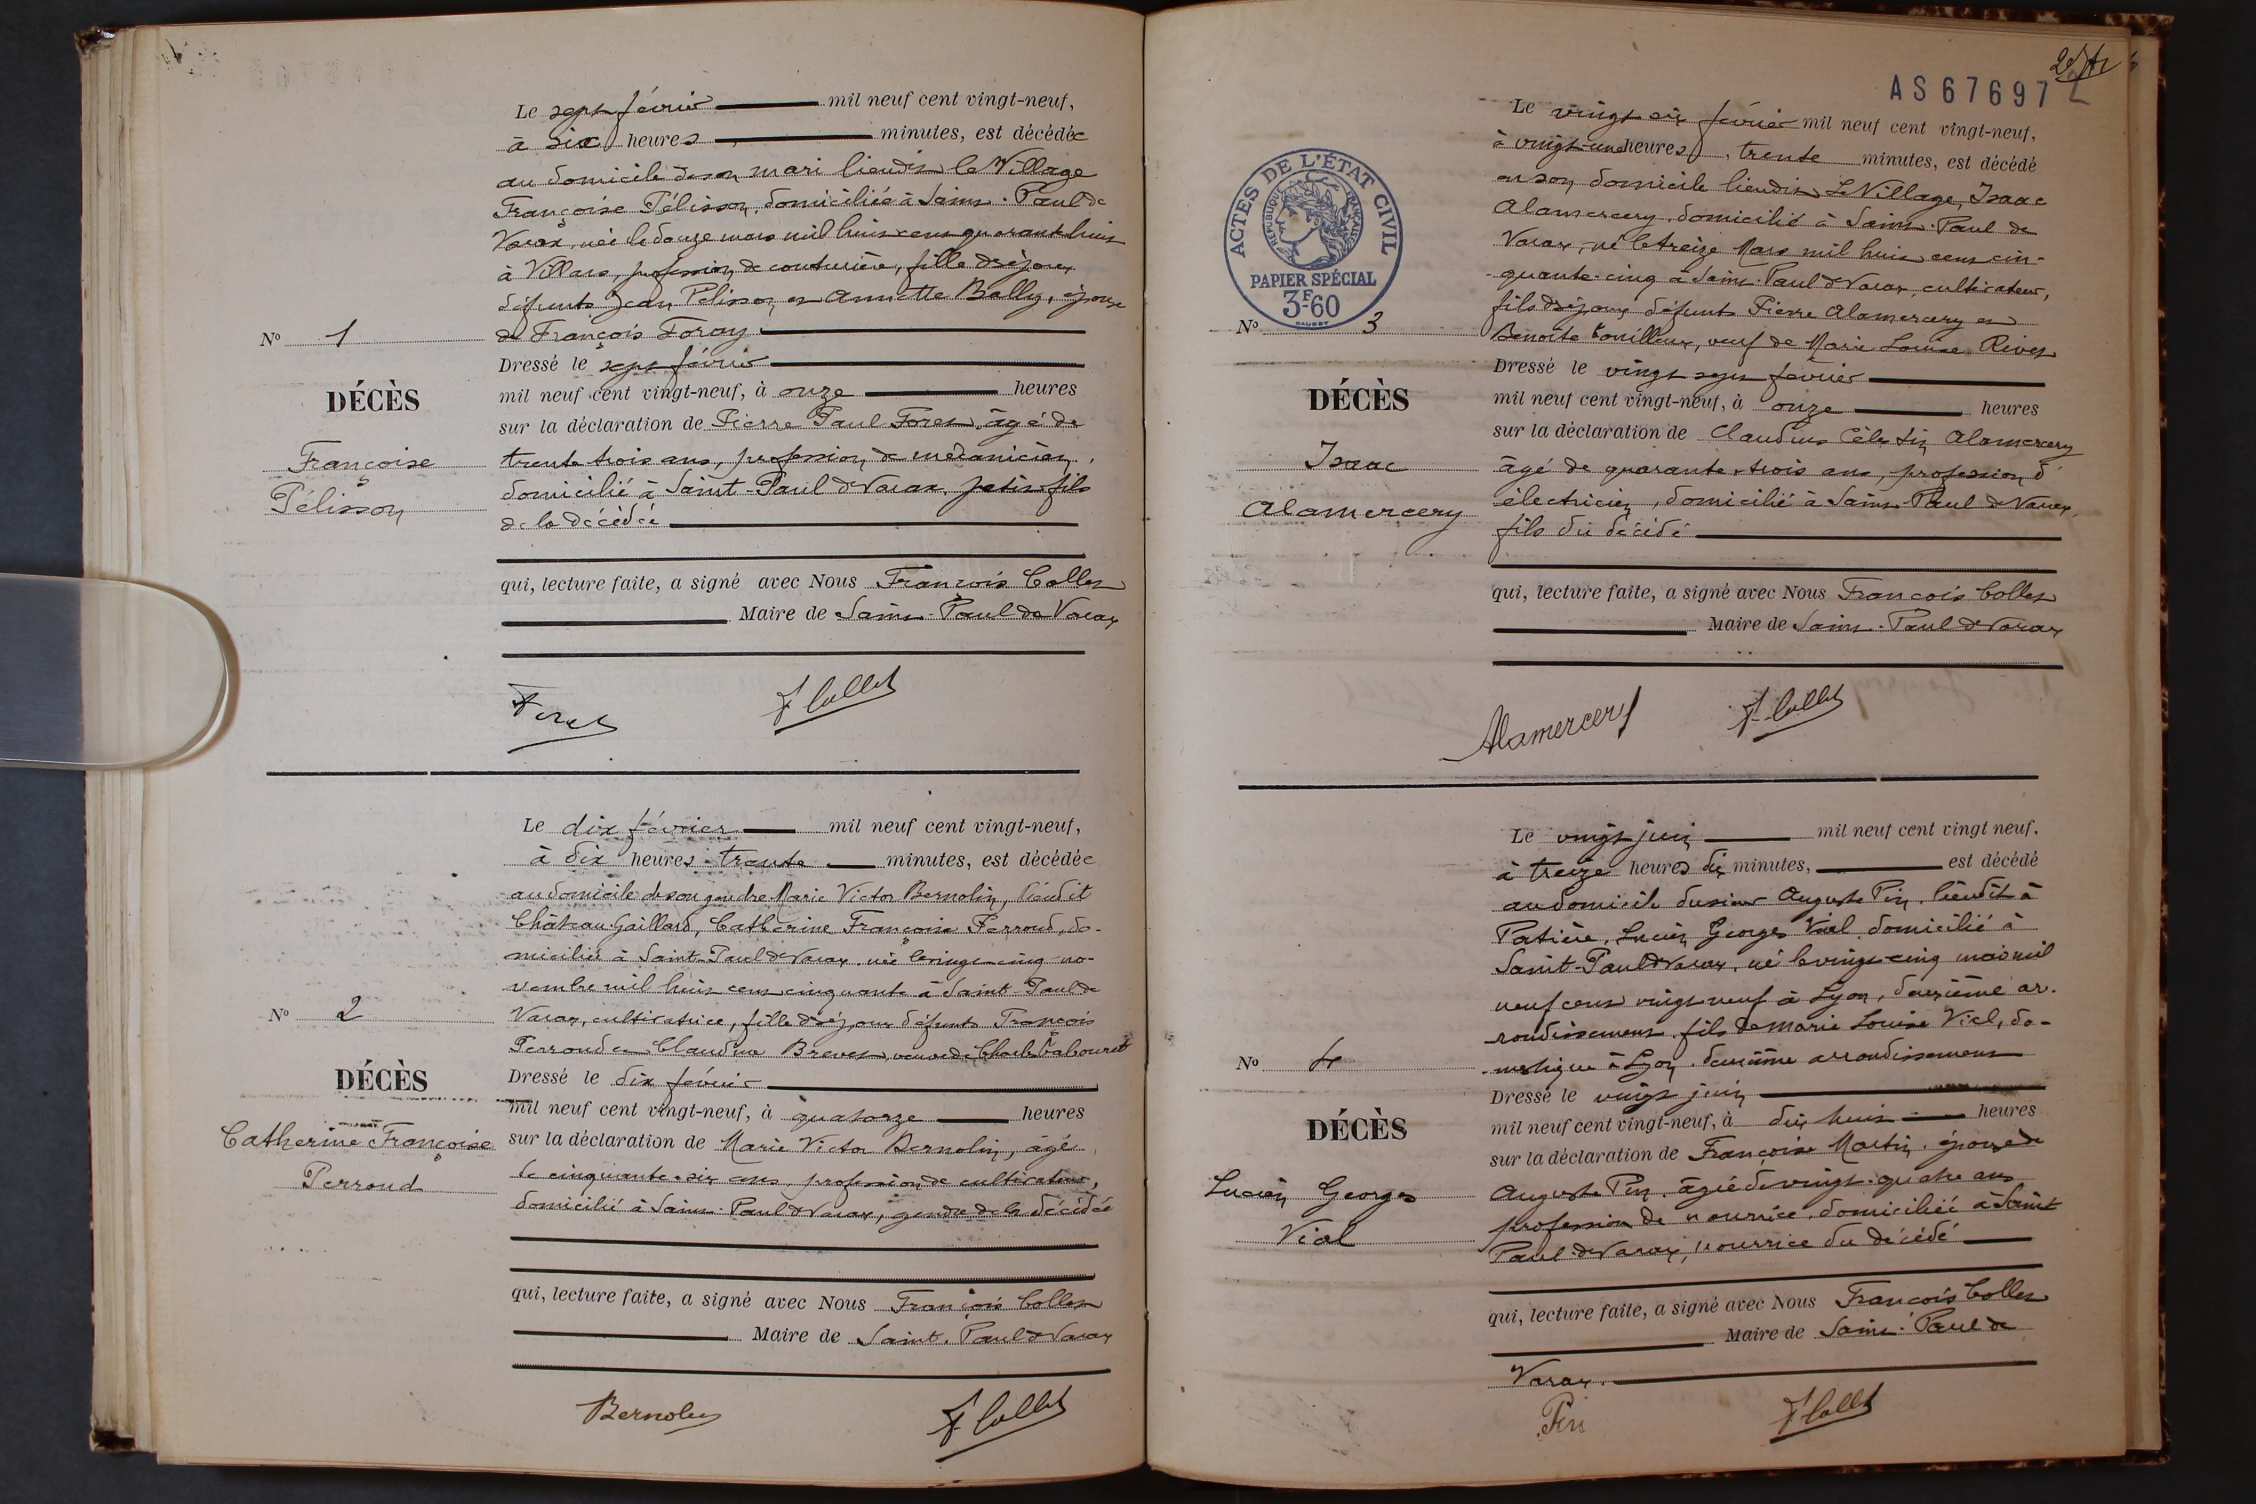 Le sept février mil neuf cent vingt-neuf,
à six heures minutes, est décédée
au domicile de son mari lieudit le Village
Françoise Pélisson, domiciliée à Saint-Paul de
Varax, née le douze mars mil huit cent quarante huit
à Villars, profession de couturière, fille des époux
défunts Jean Pélisson et Annette Bally, épouse
de François Foray
Nº 1
Dressé le sept février
mil neuf cent vingt-neuf, à onze heures
DÉCÈS
sur la déclaration de Pierre Paul Foret, âgé de
Françoise
trente trois ans, profession de mécanicien,
domicilié à Saint-Paul de Varax, petit fils
Pélisson
de la décédée
qui, lecture faite, a signé avec Nous François Collet
Maire de Saint-Paul de Varax
Foret F Collet
Le dix février mil neuf cent vingt-neuf,
à dix heures trente minutes, est décédée
au domicile de son gendre Marie Victor Bernolin, lieudit
Château-Gaillard, Catherine Françoise Perroud, do-
miciliée à Saint-Paul de Varax, née le vingt-cinq no-
vembre mil huit cent cinquante à Saint-Paul de
Nº 2
Varax, cultivatrice, fille des époux défunts François
Perroud et Claudine Brevet, veuve de Charles Tabouret
DÉCÈS
Dressé le dix février
mil neuf cent vingt-neuf, à quatorze heures
Catherine Françoise
sur la déclaration de Marie Victor Bernolin, âgé
Perroud
de cinquante-six ans, profession de cultivateur,
domicilié à Saint-Paul de Varax, gendre de la décédée
qui, lecture faite, a signé avec Nous François Collet
Maire de Saint-Paul de Varax
Bernolin F Collet
AS67697
2
ACTES DE L'ÉTAT CIVIL
RÉPUBLIQUE FRANÇAISE
PAPIER SPÉCIAL
3F60
Le vingt six février mil neuf cent vingt-neuf,
à vingt-une heures, trente minutes, est décédé
en son domicile lieudit Le Village, Isaac
Alamercery, domicilié à Saint-Paul de
Varax, né le treize Mars mil huit cent cin-
quante-cinq à Saint-Paul de Varax, cultivateur,
fils des époux défunts Pierre Alamercery et
Nº 3
Benoîte Bouilloux, veuf de Marie Louise Rivet
Dressé le vingt sept février
DÉCÈS
mil neuf cent vingt-neuf, à onze heures
sur la déclaration de Claudius Célestin Alamercery
Isaac
âgé de quarante-trois ans, profession d'
Alamercery
électricien, domicilié à Saint-Paul de Varax,
fils du décédé
qui, lecture faite, a signé avec Nous François Collet
Maire de Saint-Paul de Varax
Alamercery F Collet
Le vingt juin mil neuf cent vingt neuf,
à treize heures dix minutes, est décédé
au domicile du sieur Auguste Pin, lieudit à
Patière, Lucien Georges Vial domicilié à
Saint-Paul de Varax, né le vingt-cinq mai mil
neuf cent vingt neuf à Lyon, deuxième ar-
rondissement, fils de Marie Louise Vial, do-
Nº 4
mestique à Lyon, deuxième arrondissement
Dressé le vingt juin
DÉCÈS
mil neuf cent vingt-neuf, à dix huit heures
sur la déclaration de Françoise Martin, épouse de
Lucien Georges
Auguste Pin, âgée de vingt-quatre ans
profession de nourrice, domiciliée à Saint
Vial
Paul de Varax, nourrice du décédé
qui, lecture faite, a signé avec Nous François Collet
Maire de Saint-Paul de
Varax.
Pin F Collet